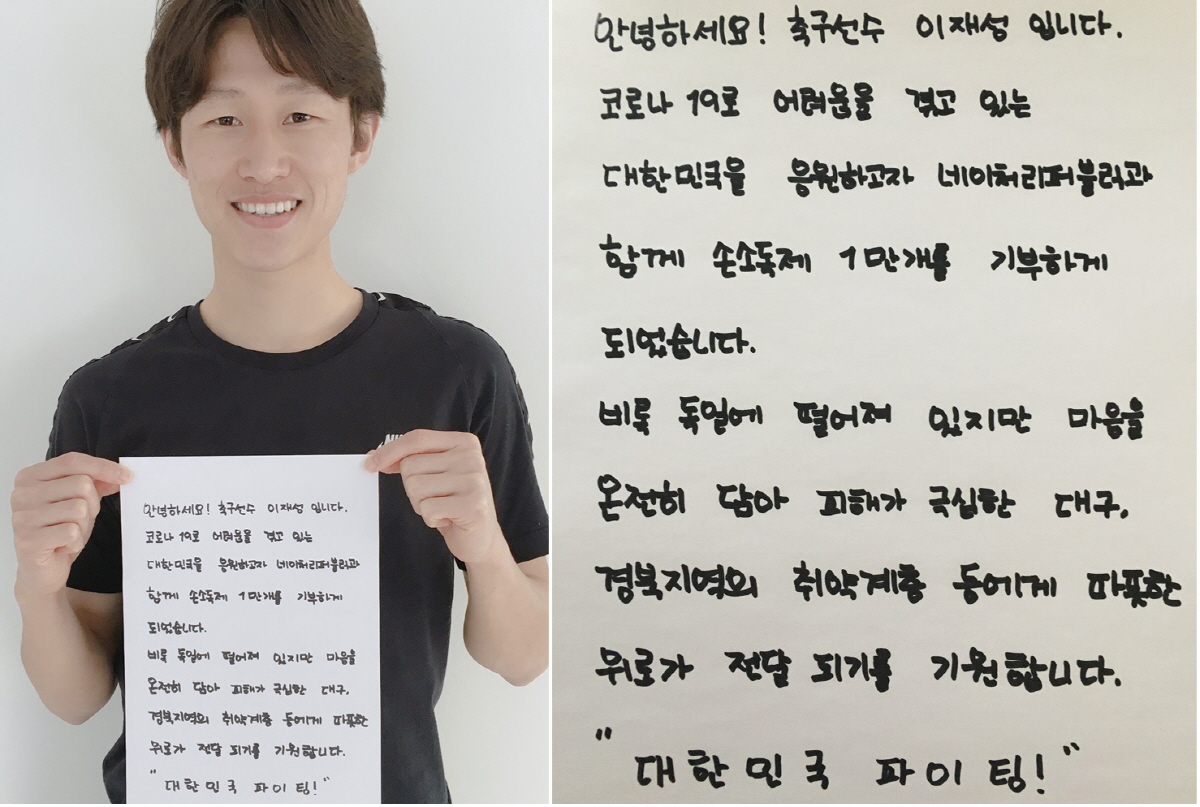 안녕하세요! 축구선수 이재성 입니다.
코로나 19로 어려움을 겪고 있는
대한민국을 응원하고자 네이처리퍼블릭과
함께 손소독제 1만개를 기부하게
되었습니다.
비록 독일에 떨어져 있지만 마음을
온전히 담아 피해가 극심한 대구,
경북지역의 취약계층 등에게 따뜻한
위로가 전달 되기를 기원합니다.
"대한민국 파이팅!"
안녕하세요! 축구선수 이재성 입니다.
코로나 19로 어려움을 겪고 있는
대한민국을 응원하고자 네이처리퍼블릭과
함께 손소독제 1만개를 기부하게
되었습니다.
비록 독일에 떨어져 있지만 마음을
온전히 담아 피해가 극심한 대구,
경북지역의 취약계층 등에게 따뜻한
위로가 전달 되기를 기원합니다.
"대한민국 파이팅!"